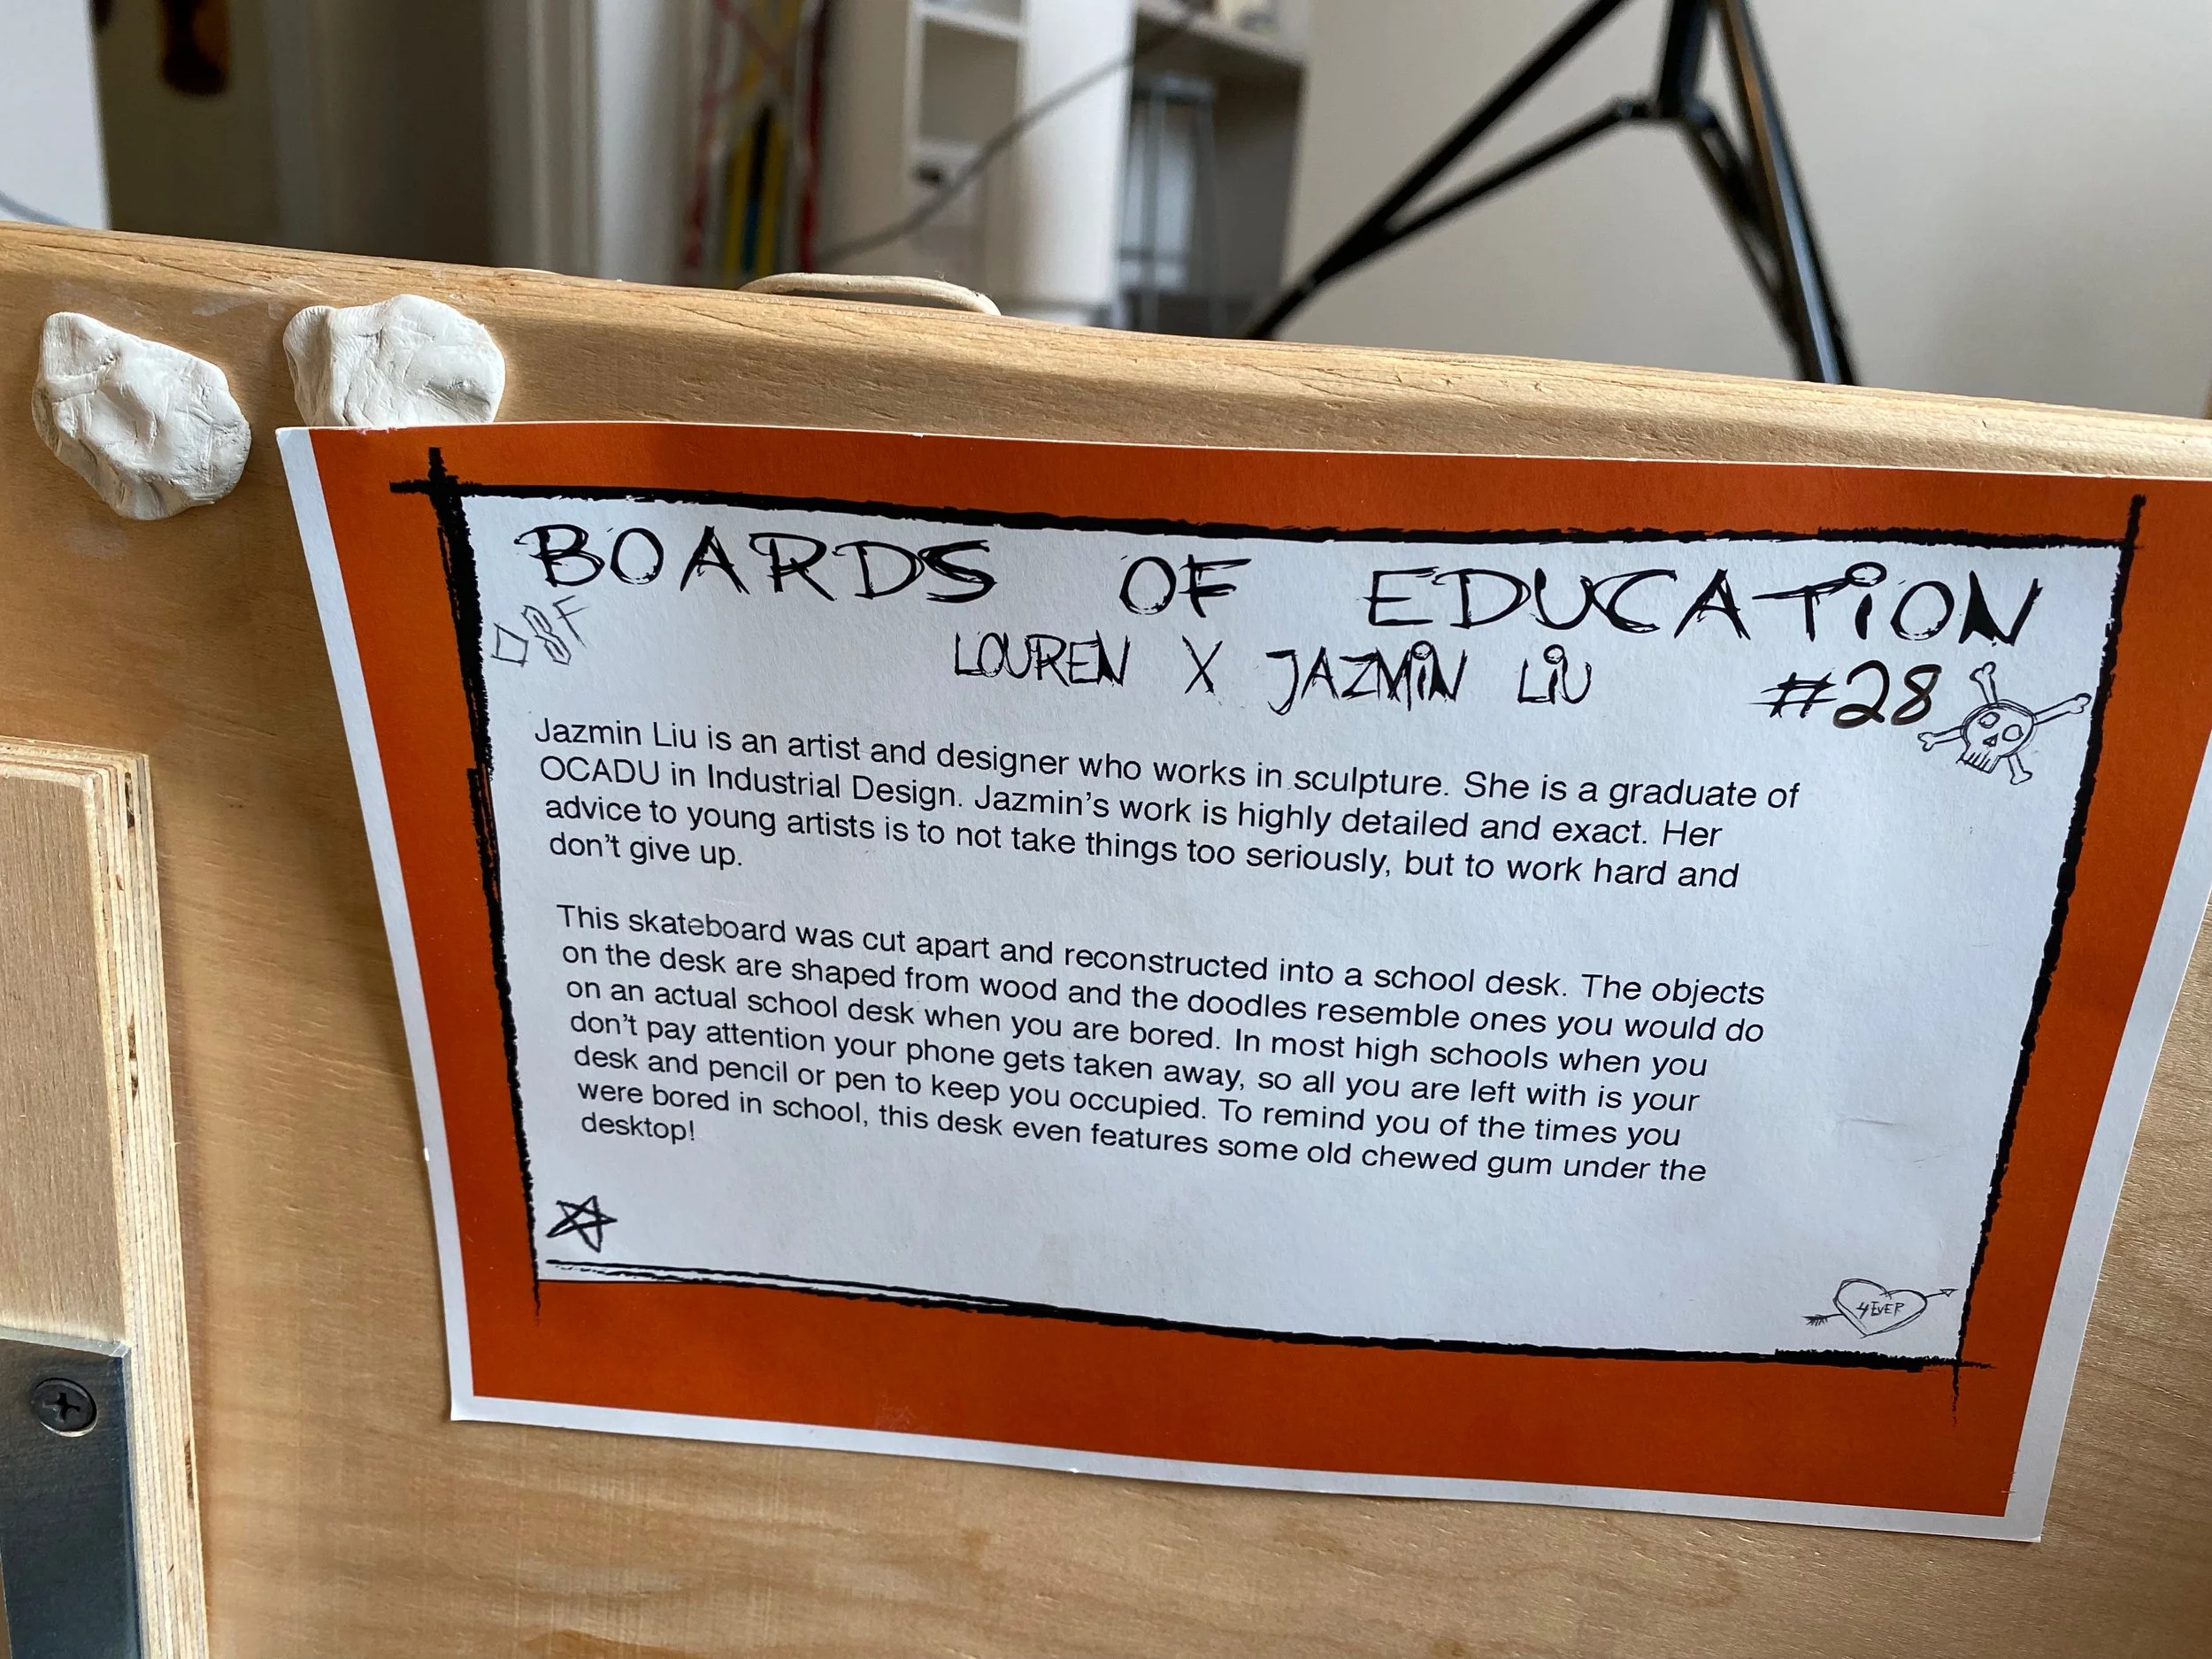 BOARDS OF EDUCATION
D8F
LOUREN X JAZMiN LiU
#28
Jazmin Liu is an artist and designer who works in sculpture. She is a graduate of
OCADU in Industrial Design. Jazmin's work is highly detailed and exact. Her
advice to young artists is to not take things too seriously, but to work hard and
don't give up.
This skateboard was cut apart and reconstructed into a school desk. The objects
on the desk are shaped from wood and the doodles resemble ones you would do
on an actual school desk when you are bored. In most high schools when you
don't pay attention your phone gets taken away, so all you are left with is your
desk and pencil or pen to keep you occupied. To remind you of the times you
were bored in school, this desk even features some old chewed gum under the
desktop!
4EVER